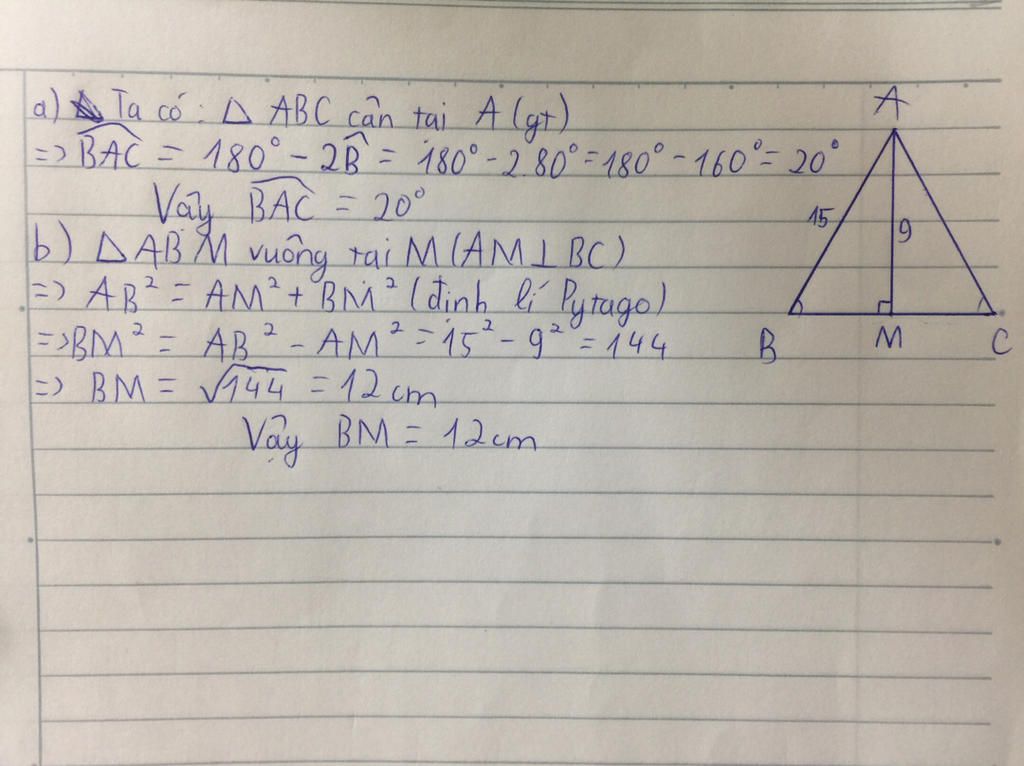 a) Ta có: Δ ABC cân tại A (gt)
=> \widehat{BAC} = 180° - 2\widehat{B} = 180° - 2.80° = 180° - 160° = 20°
Vậy \widehat{BAC} = 20°
b) Δ ABM vuông tại M (AM ⊥ BC)
=> AB² = AM² + BM² (định lí Pytago)
=> BM² = AB² - AM² = 15² - 9² = 144
=> BM = √144 = 12 cm
Vậy BM = 12 cm
A
15
9
B
M
C